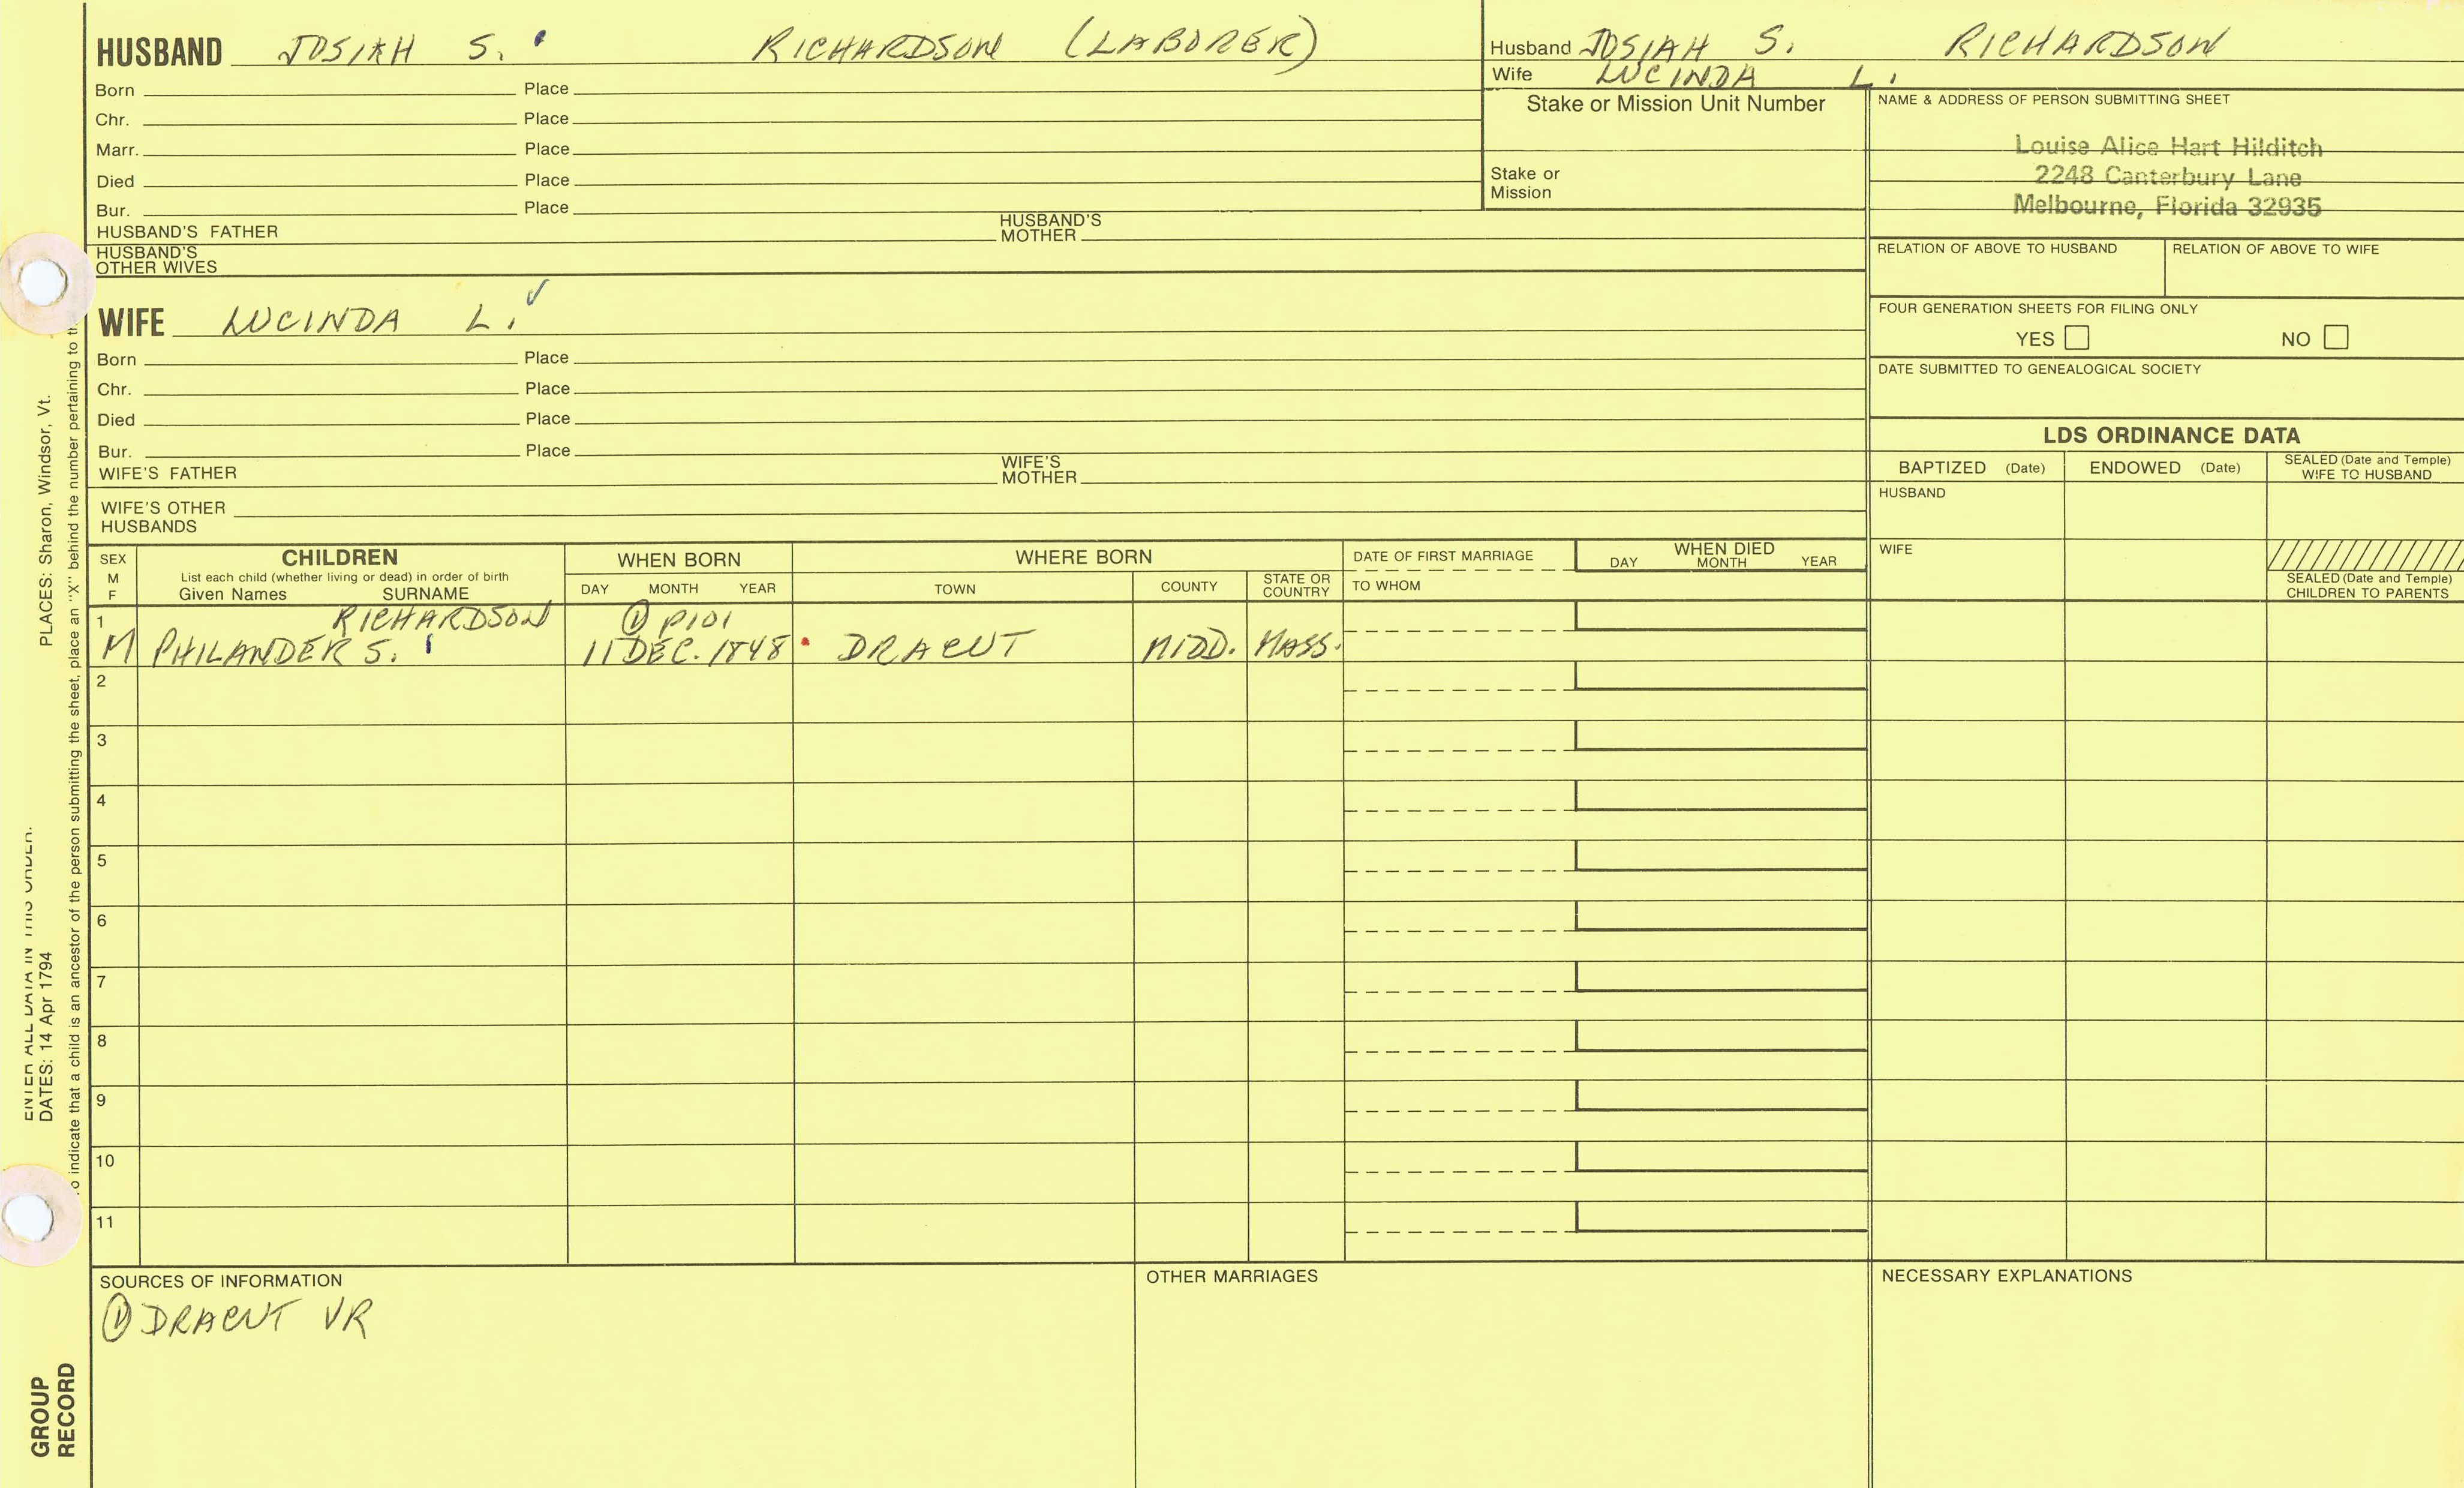 HUSBAND JOSIAH S. RICHARDSON (LABORER)
Born Place
Chr. Place
Marr. Place
Died Place
Bur. Place
HUSBAND'S FATHER HUSBAND'S MOTHER
HUSBAND'S OTHER WIVES
Husband JOSIAH S. RICHARDSON
Wife LUCINDA L.
Stake or Mission Unit Number
Stake or Mission
NAME & ADDRESS OF PERSON SUBMITTING SHEET
Louise Alice Hart Hilditch
2248 Canterbury Lane
Melbourne, Florida 32935
RELATION OF ABOVE TO HUSBAND RELATION OF ABOVE TO WIFE
FOUR GENERATION SHEETS FOR FILING ONLY
YES NO
DATE SUBMITTED TO GENEALOGICAL SOCIETY
WIFE LUCINDA L.
Born Place
Chr. Place
Died Place
Bur. Place
WIFE'S FATHER WIFE'S MOTHER
WIFE'S OTHER HUSBANDS
LDS ORDINANCE DATA
BAPTIZED (Date) ENDOWED (Date) SEALED (Date and Temple) WIFE TO HUSBAND
HUSBAND
WIFE
SEALED (Date and Temple) CHILDREN TO PARENTS
SEX M F
CHILDREN
List each child (whether living or dead) in order of birth
Given Names SURNAME
WHEN BORN
DAY MONTH YEAR
WHERE BORN
TOWN COUNTY STATE OR COUNTRY
DATE OF FIRST MARRIAGE
TO WHOM
WHEN DIED
DAY MONTH YEAR
1 RICHARDSON ① P101
M PHILANDER S. 11 DEC. 1848 DRACUT MIDD. MASS.
2
3
4
5
6
7
8
9
10
11
SOURCES OF INFORMATION
① DRACUT VR
OTHER MARRIAGES
NECESSARY EXPLANATIONS
ENTER ALL DATA IN THIS ORDER.
DATES: 14 Apr 1794 PLACES: Sharon, Windsor, Vt.
indicate that a child is an ancestor of the person submitting the sheet, place an "X" behind the number pertaining to
GROUP
RECORD